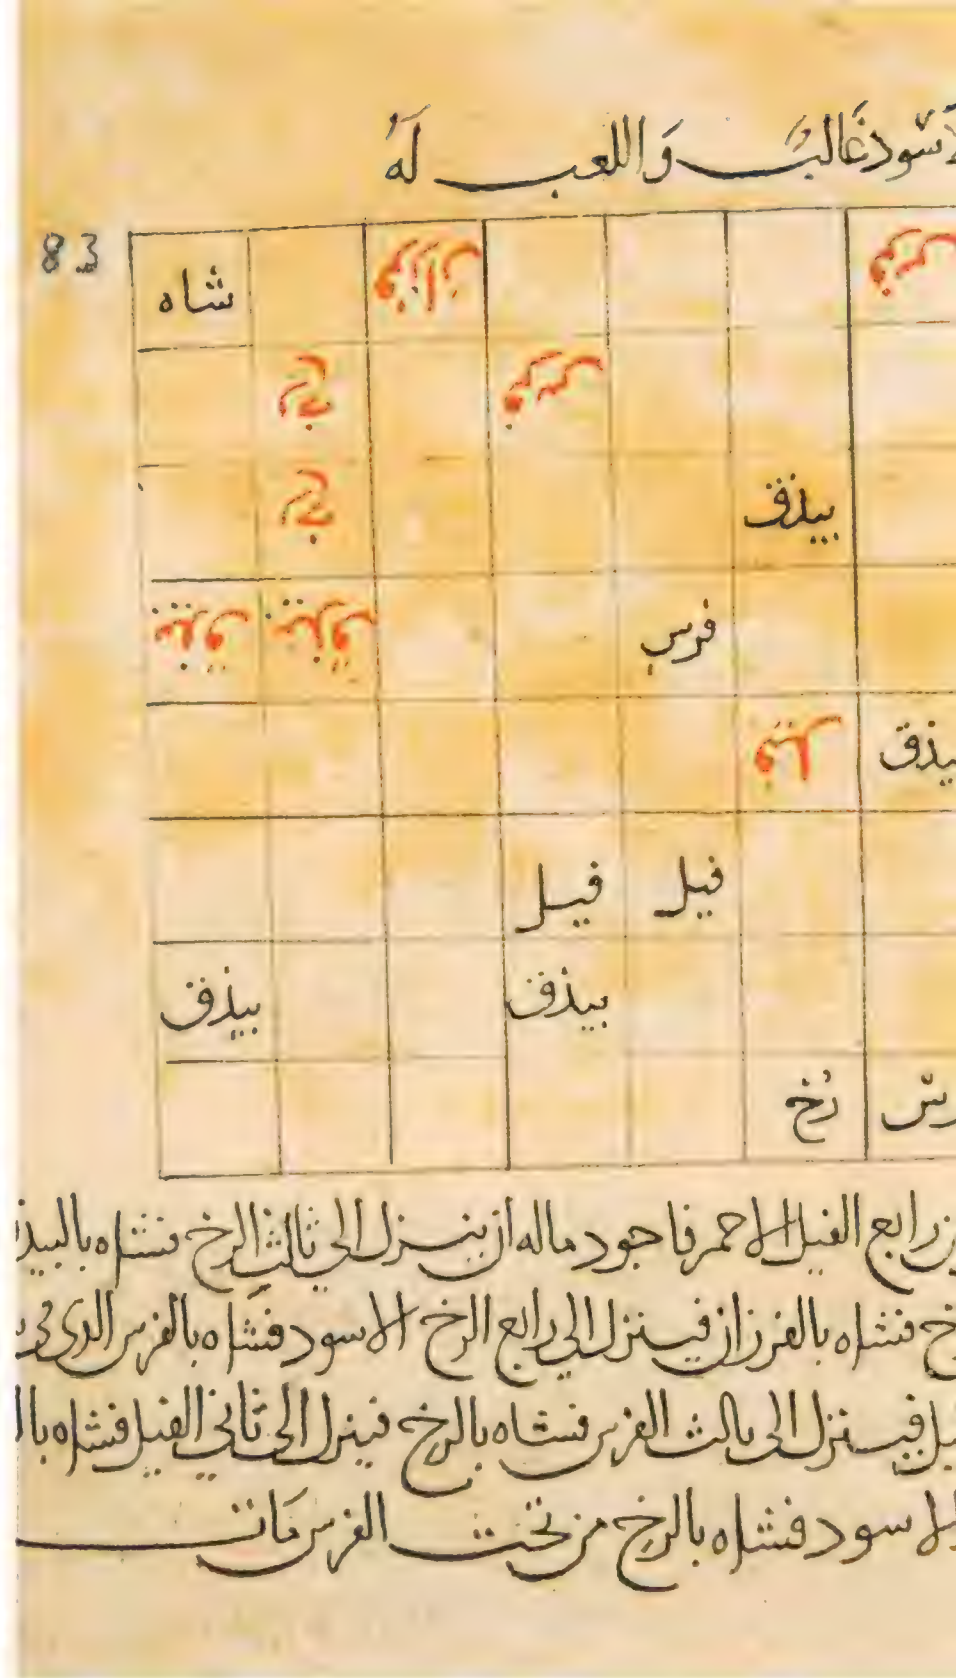 لاسود غالب واللعب له
83
شاه فرزان فرس
رخ فرس
رخ بيذق
بيذق بيذق فرس
فيل بيذق
فيل فيل
بيذق بيذق
رخ
رابع الفيل الاحمر فاجود ماله ان ينزل الى ثالث الرخ فشاه بالبيذ
فشاه بالفرزان فينزل الى رابع الرخ الاسود فشاه بالفرس الذى
فينزل الى ثالث الفرس فشاه بالرخ فينزل الى ثاني الفيل فشاه با
الاسود فشاه بالرخ من تحت الفرس مات